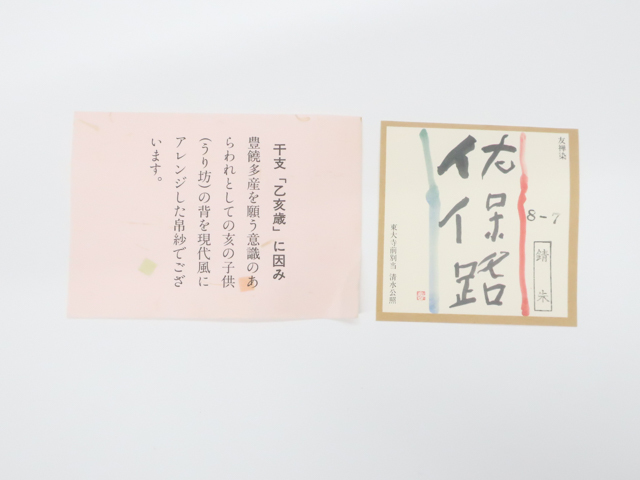 干支「乙亥歳」に因み
豊饒多産を願う意識のあ
らわれとしての亥の子供
(うり坊)の背を現代風に
アレンジした帛紗でござ
います。
友禅染
8-7
錆朱
佐保路
東大寺前別当 清水公照